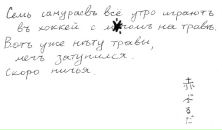 Семь самураевъ всё утро играютъ
въ хоккей с мячомъ на травѣ.
Вотъ уже нѣту травы,
мечъ затупился.
Скоро ничья